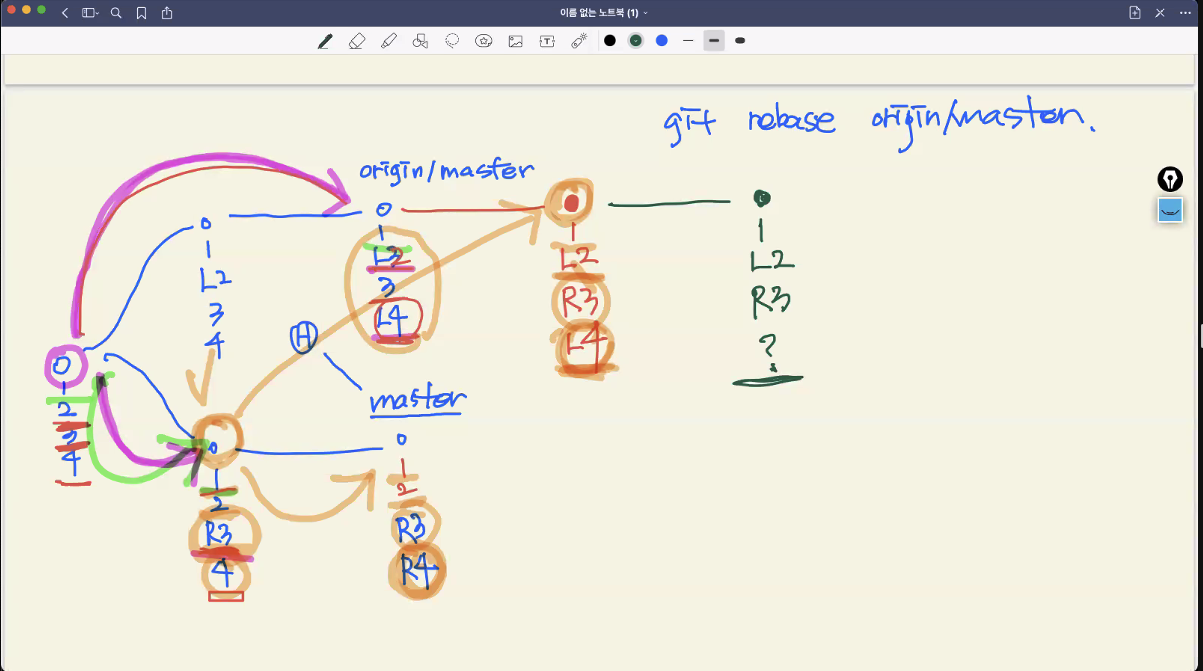 이름 없는 노트북 (1)
git rebase origin/master.
origin/master
0
1
L2
3
4
0
1
L2
3
L4
1
L2
R3
L4
1
L2
R3
?
H
master
0
1
2
3
4
0
1
2
R3
4
0
1
2
R3
R4